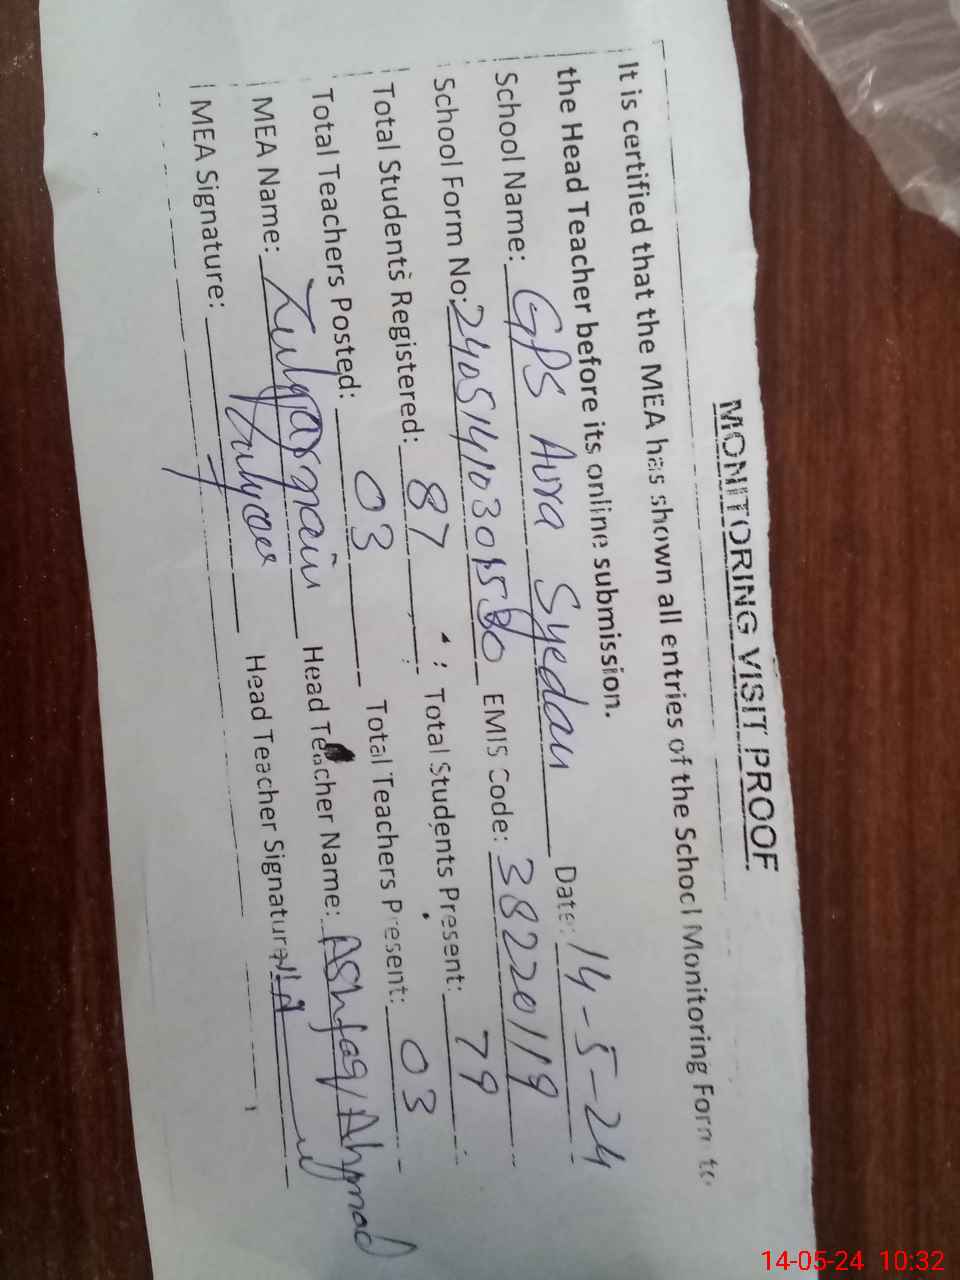 MONITORING VISIT PROOF
It is certified that the MEA has shown all entries of the School Monitoring Form to
the Head Teacher before its online submission.
School Name: GPS Aura Syedan Date: 14-5-24
School Form No: EMIS Code: 38220119
Total Students Registered: 87 Total Students Present: 79
Total Teachers Posted: 03 Total Teachers Present: 03
MEA Name: Zulqarnain Head Teacher Name: Ashfaq Ahmad
MEA Signature: Head Teacher Signature:
14-05-24 10:32